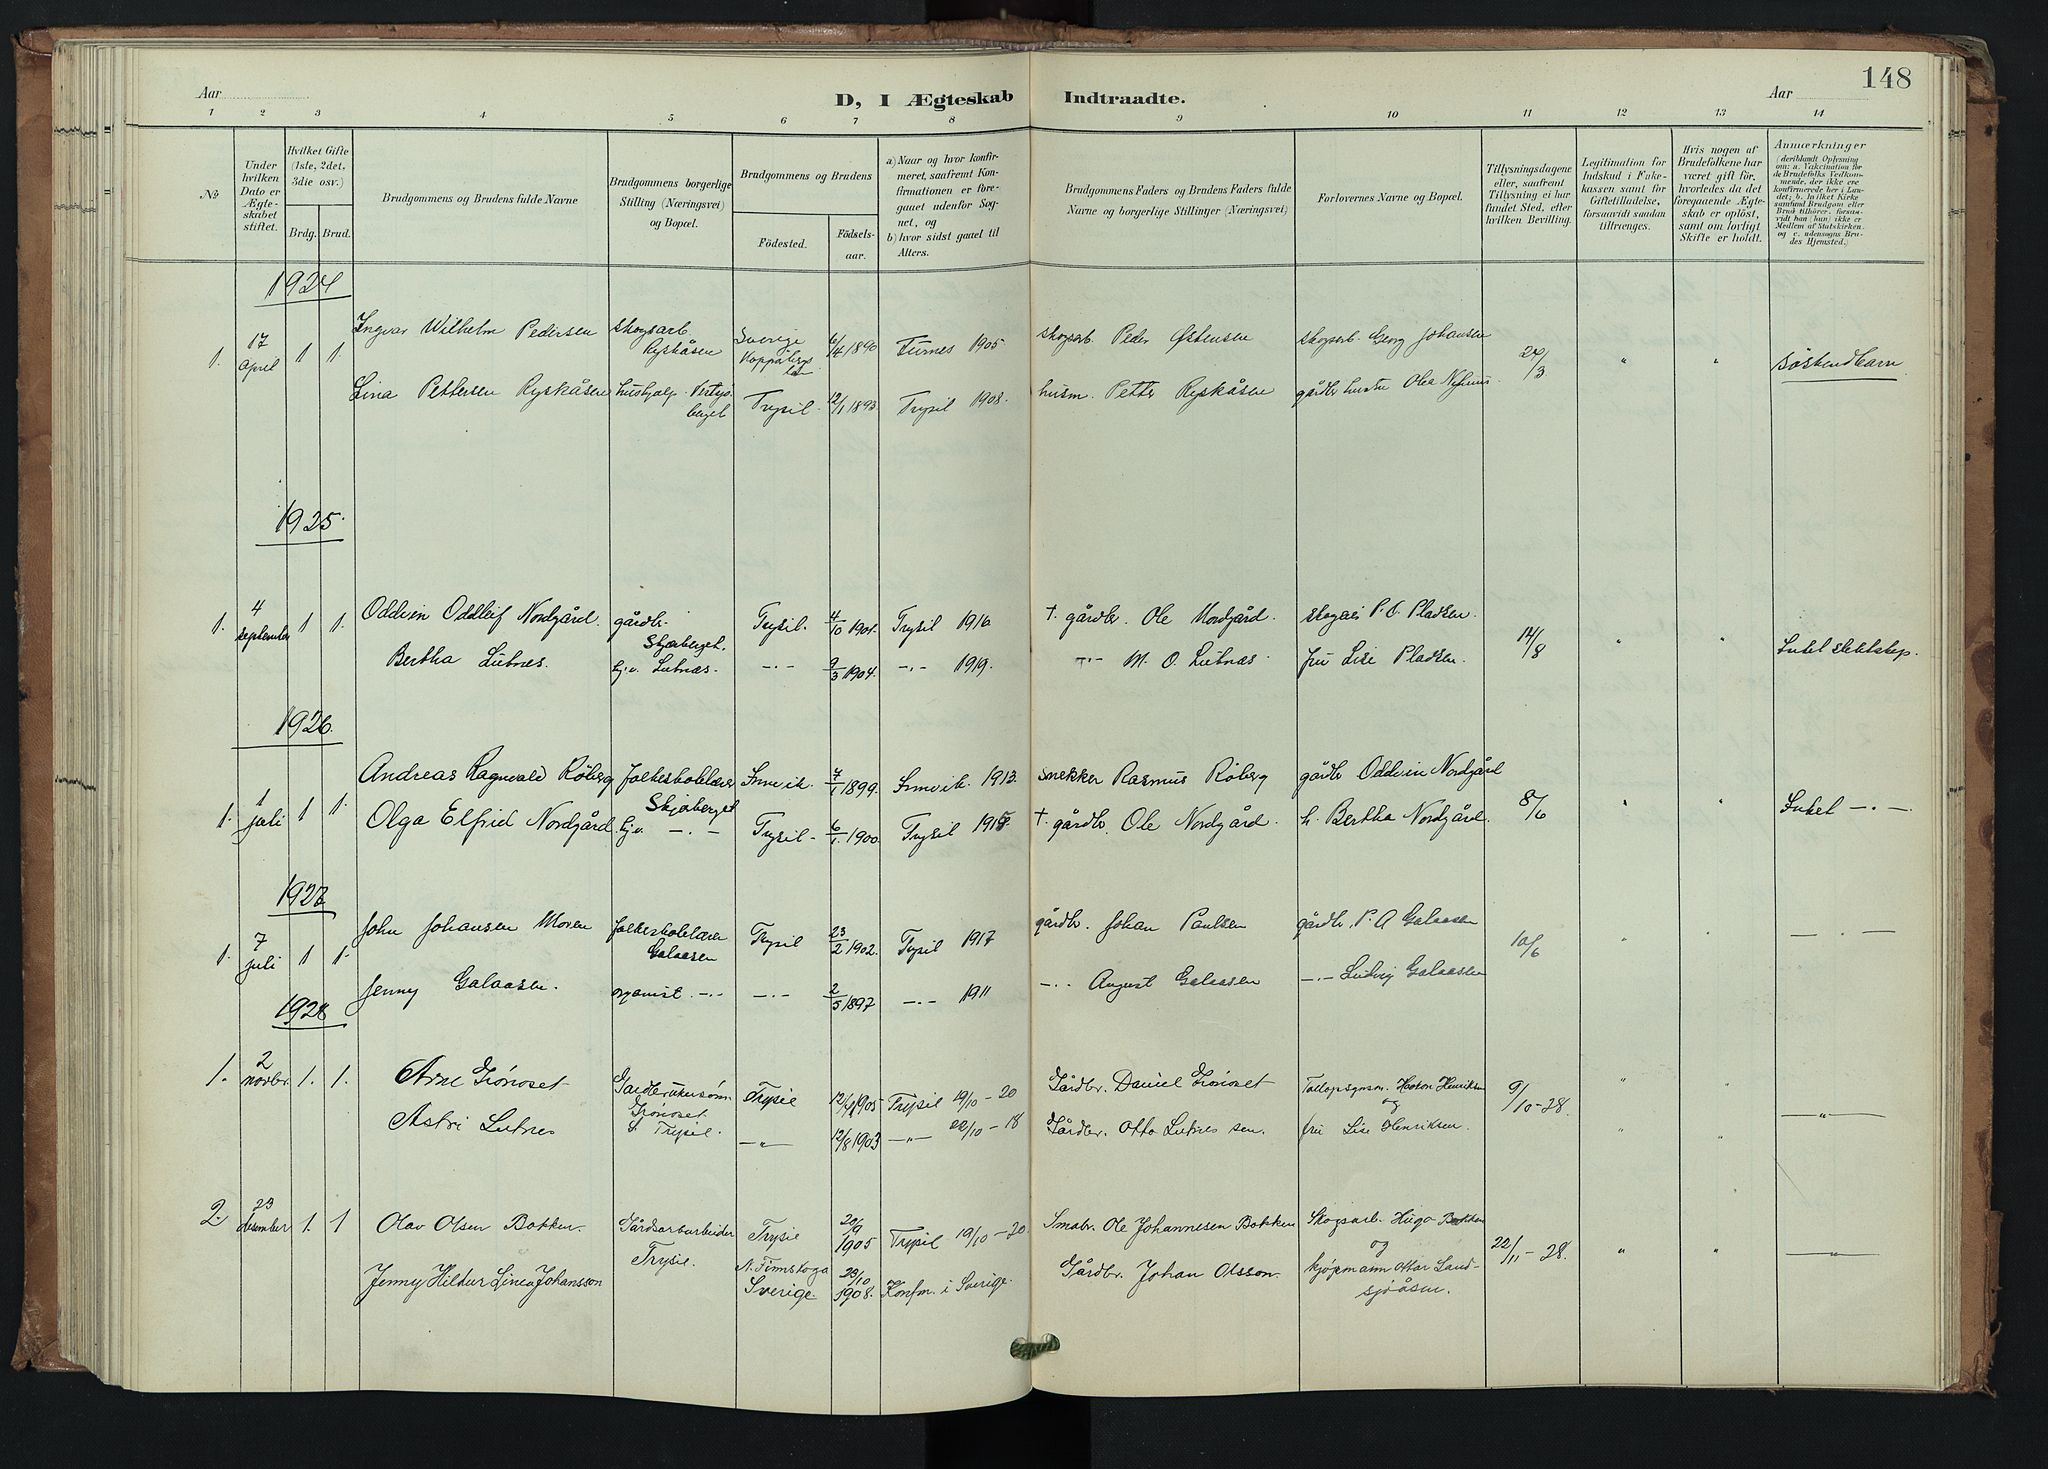 148
Aar
D, I Ægteskab Indtraadte.
Aar
1 2 3 4 5 6 7 8 9 10 11 12 13 14
No
Under hvilken Dato er Ægteskabet stiftet.
Hvilket Gifte (1ste, 2det, 3die osv.)
Brdg. Brud.
Brudgommens og Brudens fulde Navne
Brudgommens borgerlige Stilling (Næringsvei) og Bopæl.
Brudgommens og Brudens
Födested. Födselsaar.
a) Naar og hvor konfirmeret, saafremt Konfirmationen er foregaaet udenfor Sognet, og
b) hvor sidst gaaet til Alters.
Brudgommens Faders og Brudens Faders fulde Navne og borgerlige Stillinger (Næringsvei)
Forlovernes Navne og Bopæl.
Tillysningsdagene eller, saafremt Tillysning ei har fundet Sted, efter hvilken Bevilling.
Legitimation for Indskud i Enkekassen samt for Giftetilladelse, forsaavidt saadan tiltrænges.
Hvis nogen af Brudefolkene har været gift før, hvorledes da det foregaaende Ægteskab er oplöst, samt om lovligt Skifte er holdt.
Anmærkninger
1924
1. 17 April 1 1. Ingvar Wilhelm Pedersen skogsarb. Ryskåsen Sverige Koppabergs län 6/4 1890 Furnes 1905 skogsarb. Peder Østensen skogsarb. Georg Johansen 24/3 " " søskendbarn
Lina Pettersen Ryskåsen hushjælp 12/1 1893 Trysil. Trysil 1908. husm. Petter Ryskåsen gårdbr hustru Olea Nyhuus.
1925.
1. 4 september 1 1. Oddvin Oddleif Nordgård. gårdbr. Skjæberget. Trysil. 4/10 1901. Trysil 1916 † gårdbr. Ole Nordgård. P. O. Pladsen. 14/8 " " Intet slektskap.
Bertha Lutnes. hj.v. Lutnæs. -.- 9/3 1904. -.- 1919. -.- M. O. Lutnæs. fru Lise Pladsen.
1926.
1. 1 juli 1 1. Andreas Ragnvald Röberg folkeskolelærer Skjæberget Innvik. 7/1 1899. Innvik. 1913. snekker Rasmus Röberg gårdbr Oddvin Nordgård 8/6 " " Intet -.-
Olga Elfrid Nordgård. hj.v. -.- Trysil. 6/1 1900. Trysil 1915. † gårdbr. Ole Nordgård. h. Bertha Nordgård.
1927
1. 7 juli 1 1. John Johansen Moren folkeskolelærer Galaasen Trysil 23/2 1902. Trysil 1917 gårdbr. Johan Paulsen gårdbr. P. A Galaasen 10/6 " " -.-
Jenny Galaasen. organist. -.- -.- 2/5 1897 -.- 1911 -.- August Galaasen -.- Ludvig Galaasen
1928
1. 2 novbr. 1. 1. Arne Grönoset Gardbrukersönn Grönoset. S. Trysil. Trysil 1905 Trysil 19/10 - 20 Gårdbr. Daniel Grönoset Haakon Henriksen og 9/10 - 28. " -"-
Astri Lutnes -"- 12/8 1903 -"- 22/10 - 18 Gårdbr. Otto Lutnes sen. fru Lise Henriksen. " "
2. 23 desember 1. 1 Olav Olsen Bakken. Gårdsarbeider Trysil. Trysil 20/9 1905 Trysil 19/10 - 20. Smabr. Ole Johannesen Bakken Skogsarb. Hugo Bakken og 22/11 - 28. " " -"-
Jenny Hildur Linea Johansson N. Finnskoga Sverige. 23/10 1908. Konfm. i Sverige. Gårdbr. Johan Olsson. kjøpmann Ottar Landsjöåsen.